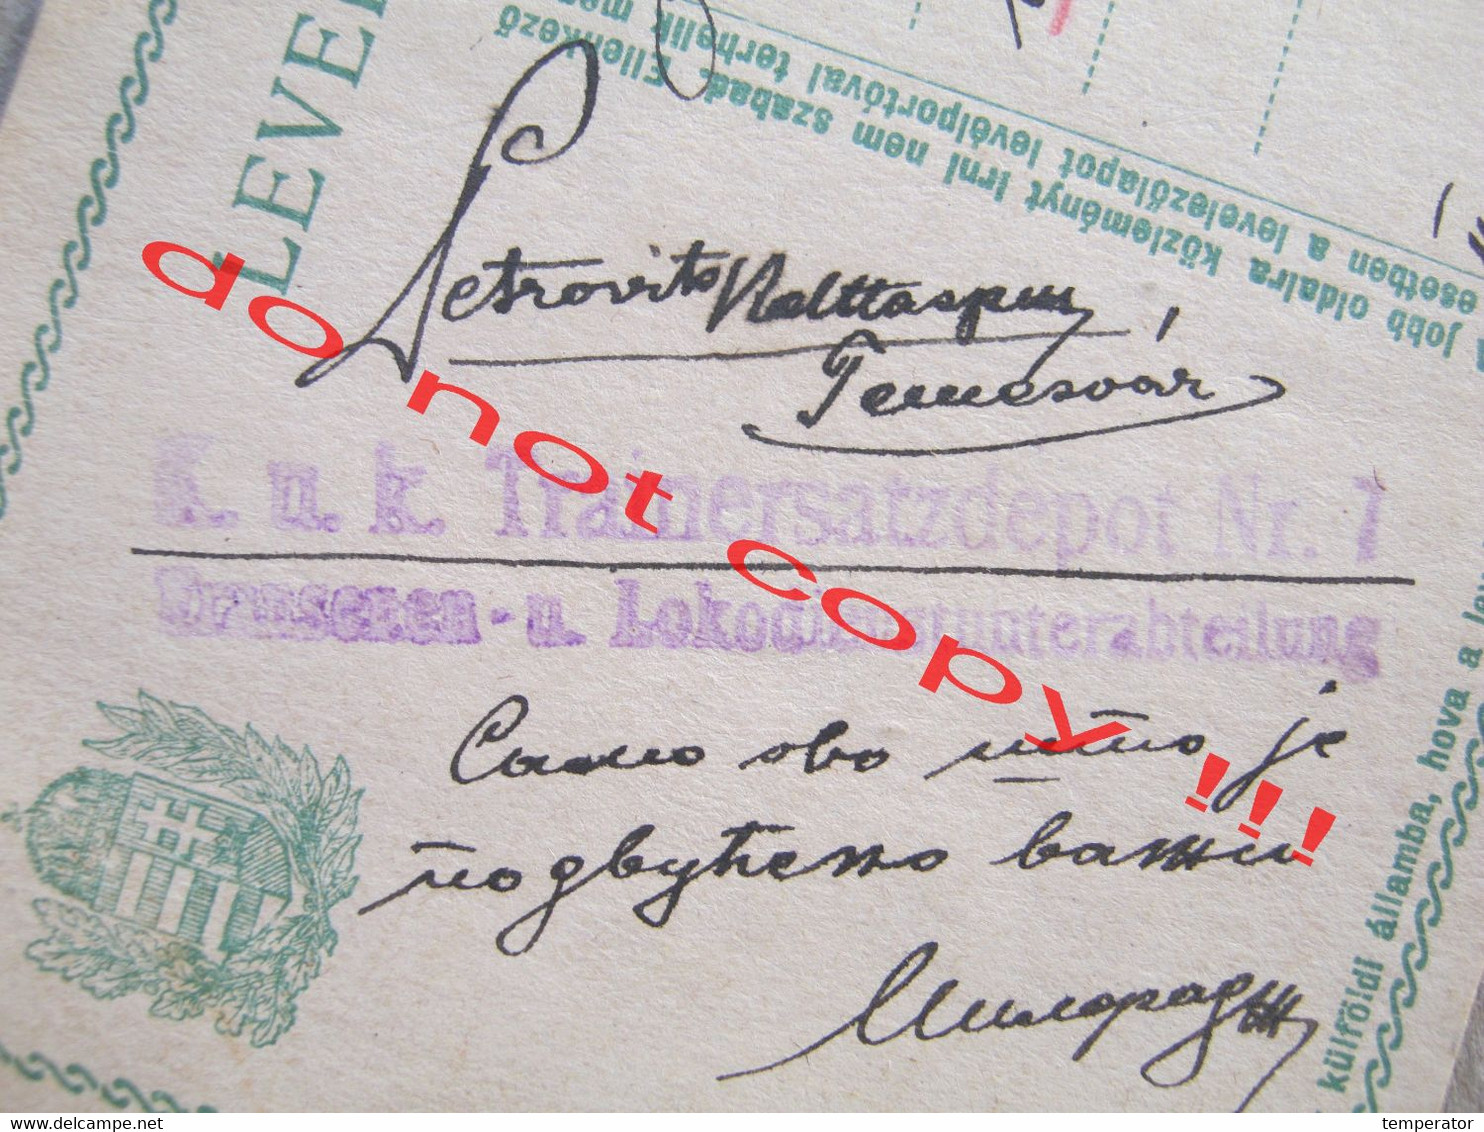 LEVE
jobb oldalra közleményt irni nem szabad. Ellenkező
esetben a levelezőlapot levélportóval terhelik me
Petrovits
Temesvár
K. u. k. Trainersatzdepot Nr. 7
u. Lokodienstunterabteilung
Само ово што је
подвучено важи
Милорад
külföldi államba, hova a le
do not copy !!!
delcampe.net
temperator